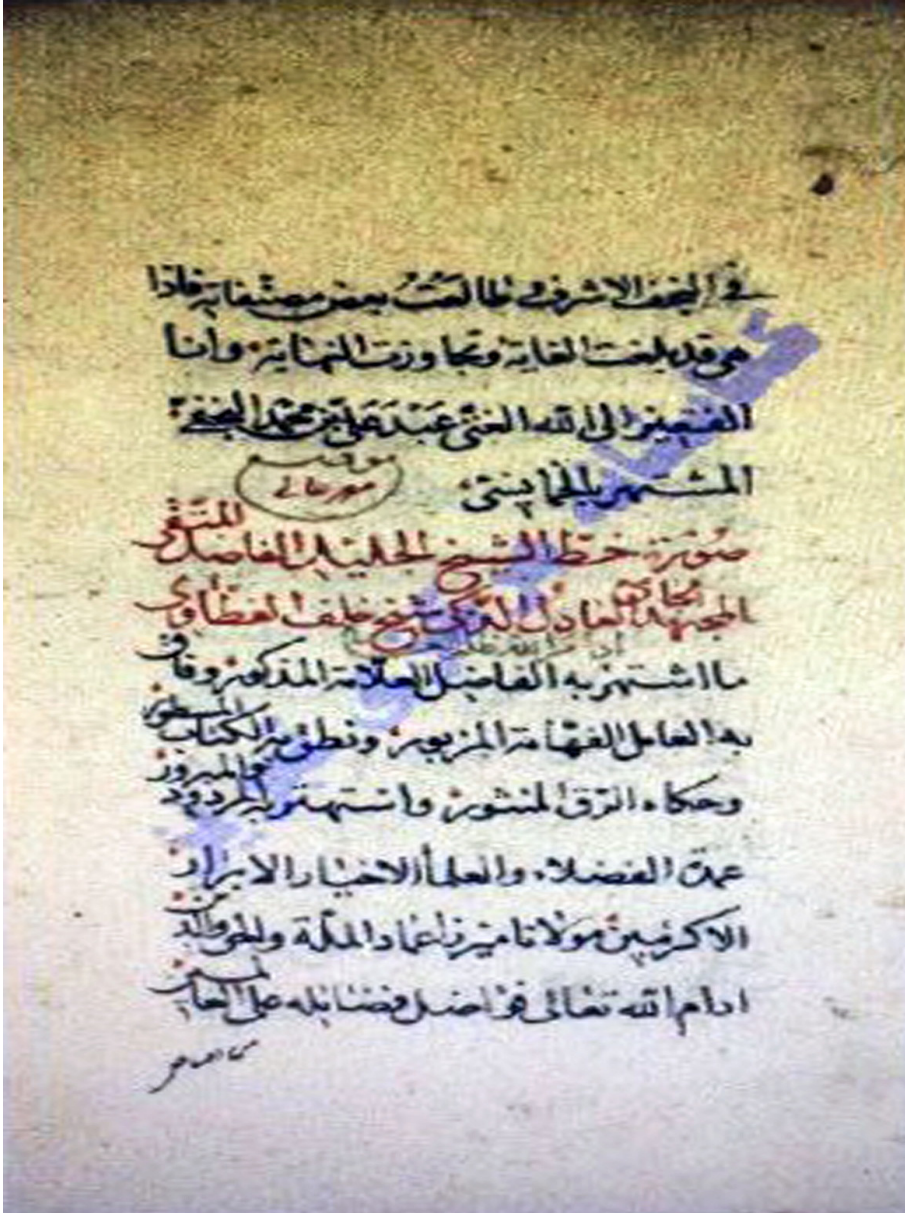 في النجف الاشرف و طالعتُ بعض مصنفاته فاذا
هي قد بلغت الغاية وتجاوزت النهاية وانا
الفقير الى الله الغني عبد علي بن محمد النجفي
المشتهر موضع مهر عالی
صورة خط الشيخ الجليل الفاضل المتقي
المجتهد العادل الزكي شيخ خلف
ما اشتهر به الفاضل العلامة المذكور وفاق
به العامل الفهامة المزبور ونطق به الكتاب المسطور
وحكاه الرق المنشور واشتهر به
عمدة الفضلاء والعلمأ الاخيار الابرار
الاكرمين مولانا ميرزا عماد الملة
ادام الله تعالى فواضل فضائله على العالمين